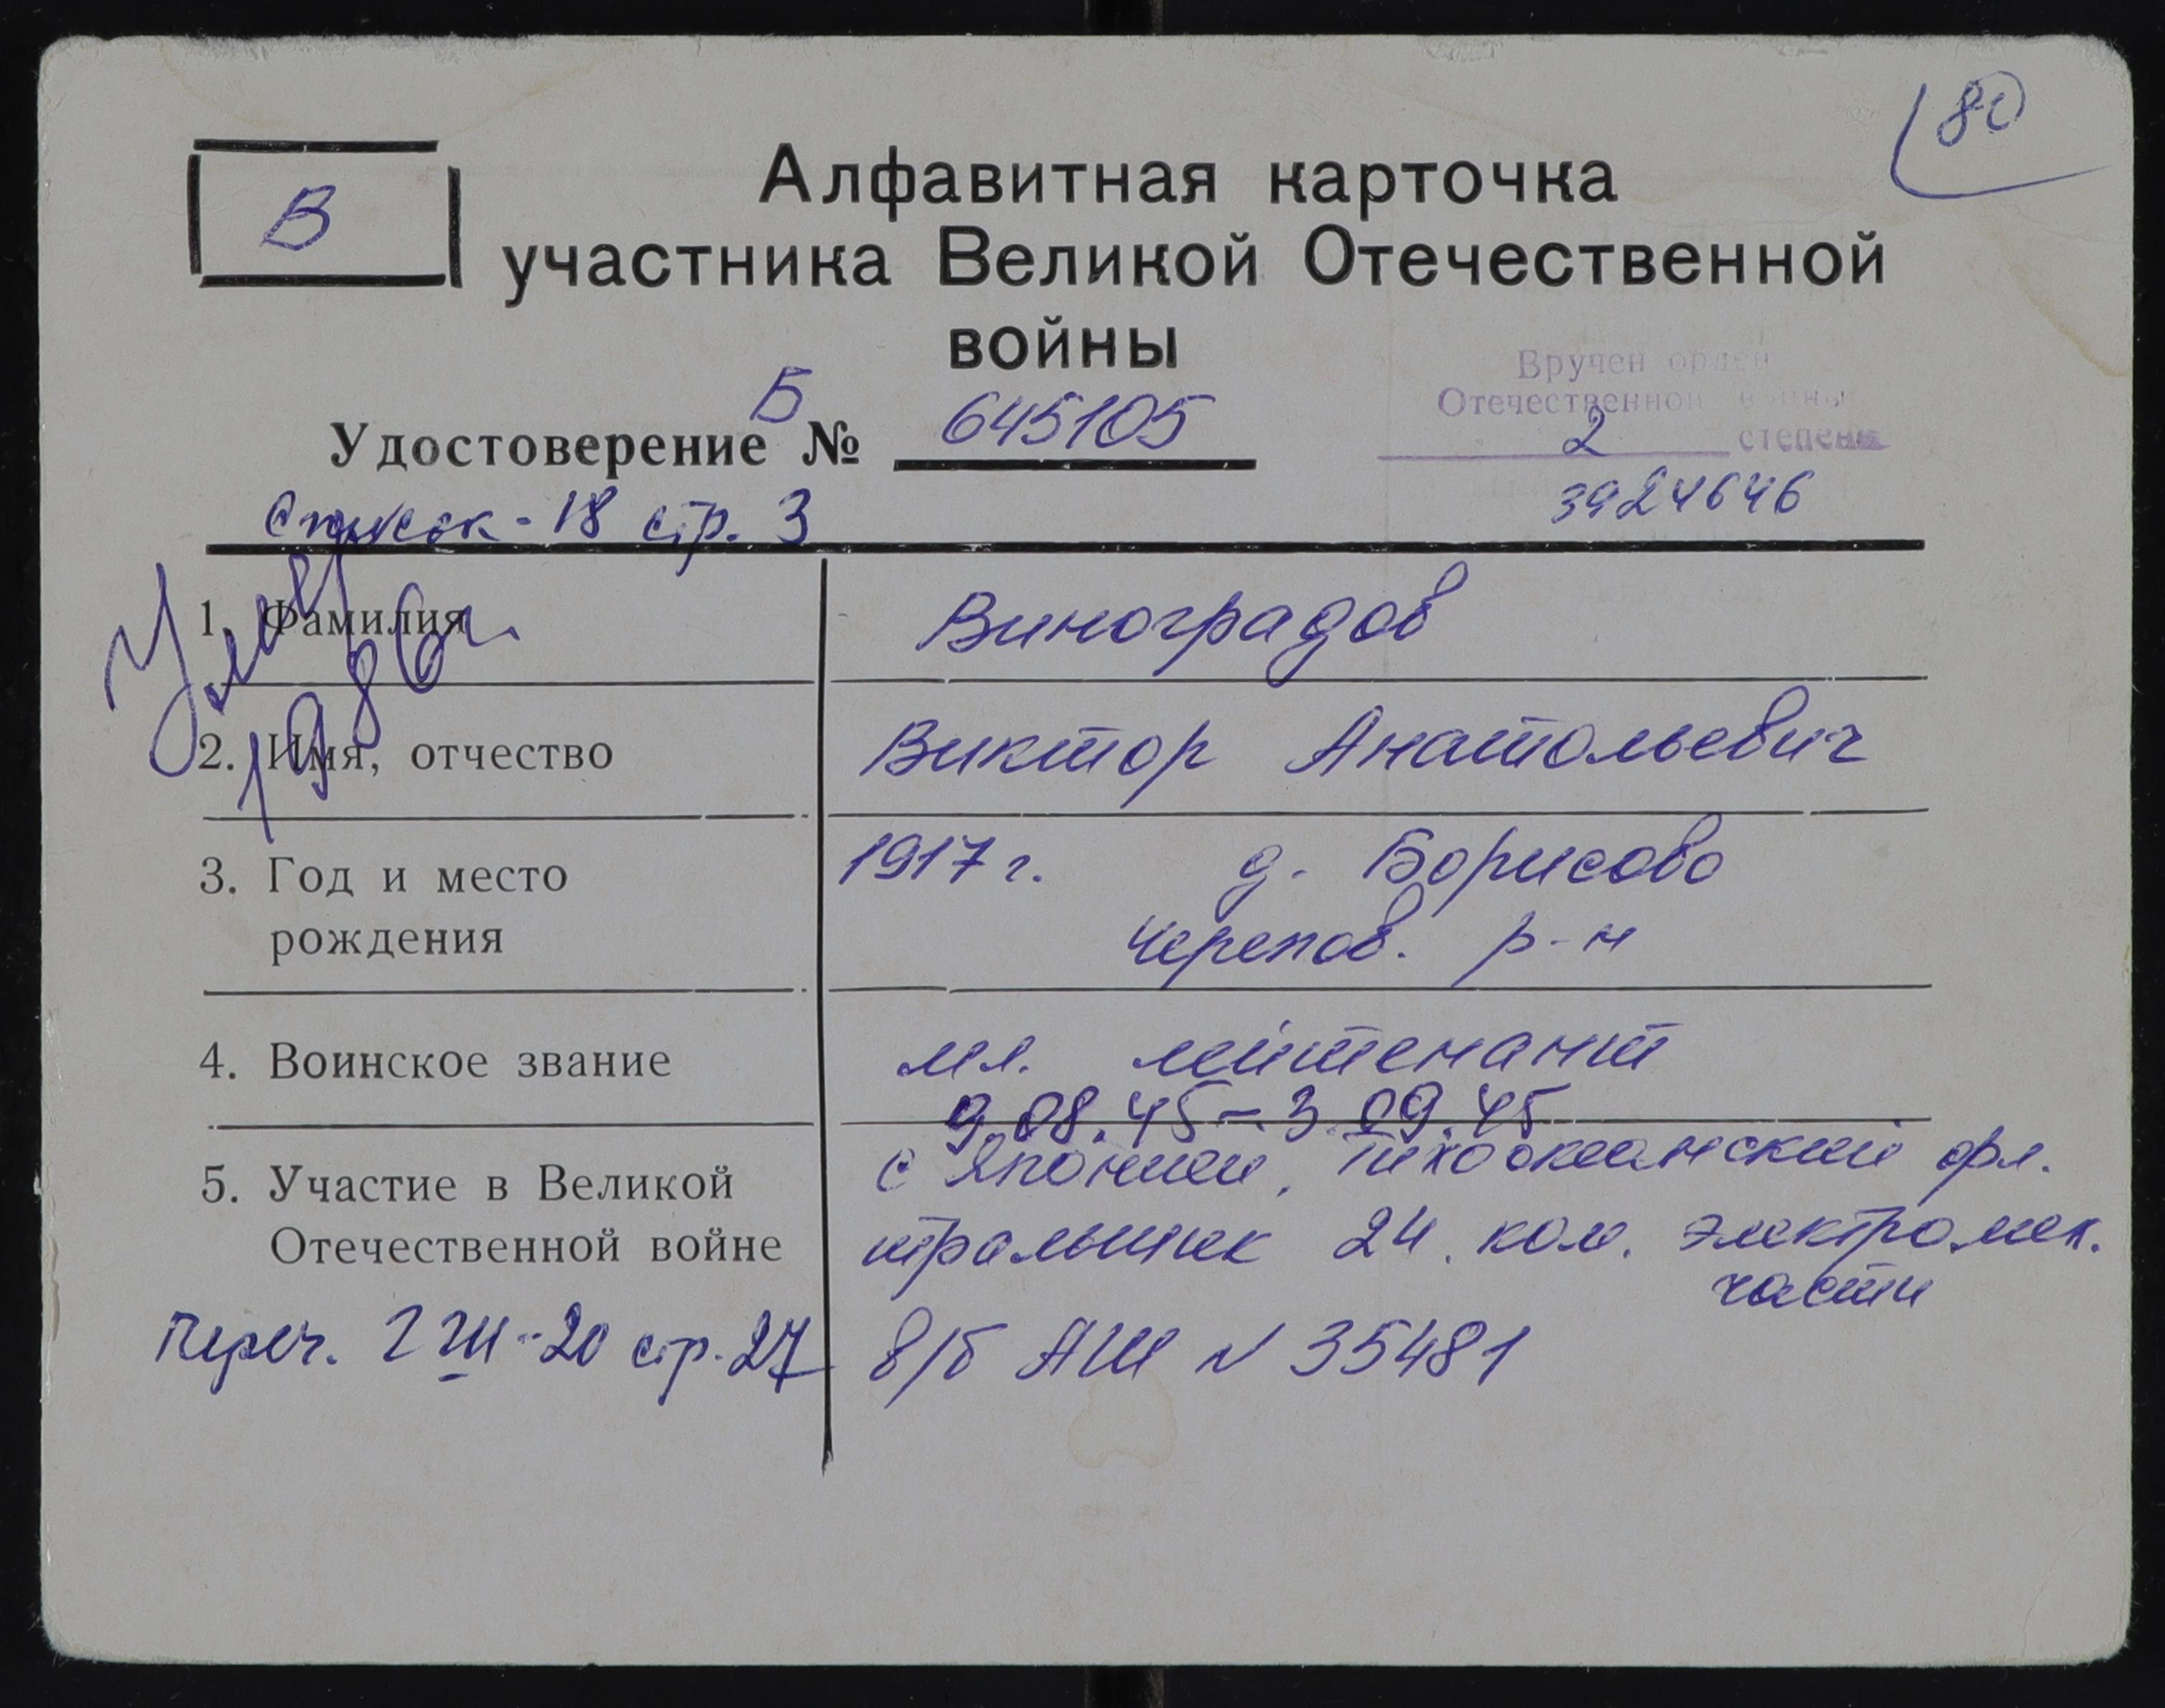 80
В
Алфавитная карточка
участника Великой Отечественной
войны
Вручен орден
Отечественной войны
2 степени
3924646
Удостоверение Б № 645105
Список - 18 стр. 3
Умер 1986 г.
1. Фамилия Виноградов
2. Имя, отчество Виктор Анатольевич
3. Год и место 1917 г. д. Борисово
рождения черепов. р-н
4. Воинское звание мл. лейтенант
9.08.45 - 3.09.45
5. Участие в Великой с Японией, Тихоокеанский фл.
Отечественной войне тральщик 24. ком. электромех.
части
Переч. 2 III - 20 стр. 27 в/б АШ N 35481